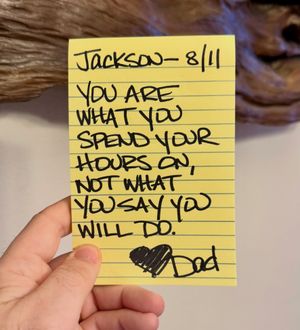 JACKSON- 8/11
YOU ARE
WHAT YOU
SPEND YOUR
HOURS ON,
NOT WHAT
YOU SAY YOU
WILL DO.
Dad